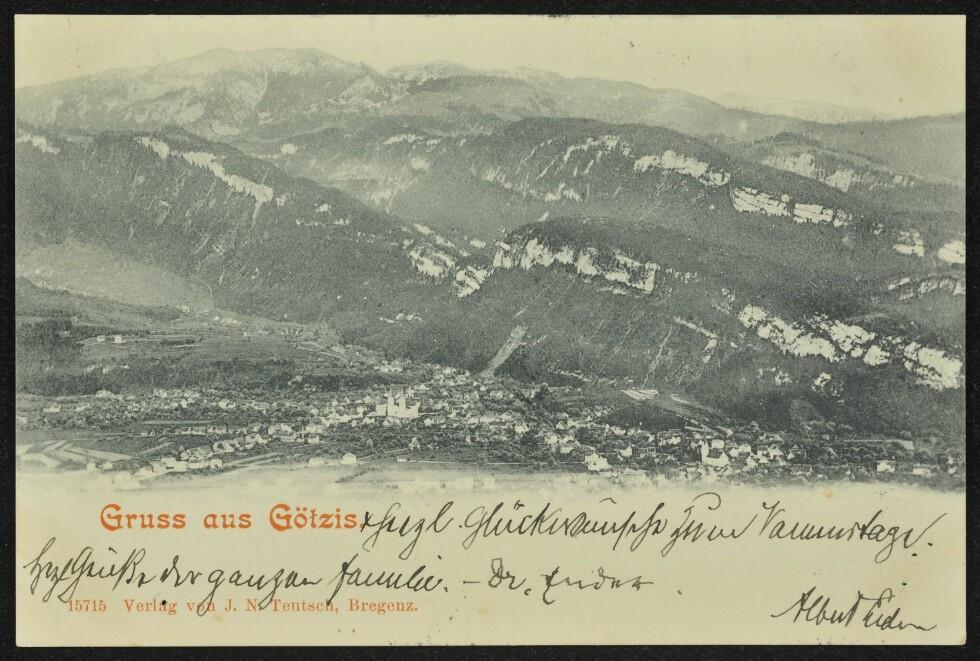 Gruss aus Götzis. & herzl. Glückwünsche zum Namenstage.
Hzl Grüße der ganzen Familie. – Dr. Ender.
15715 Verlag von J. N. Teutsch, Bregenz.
Albert Ender